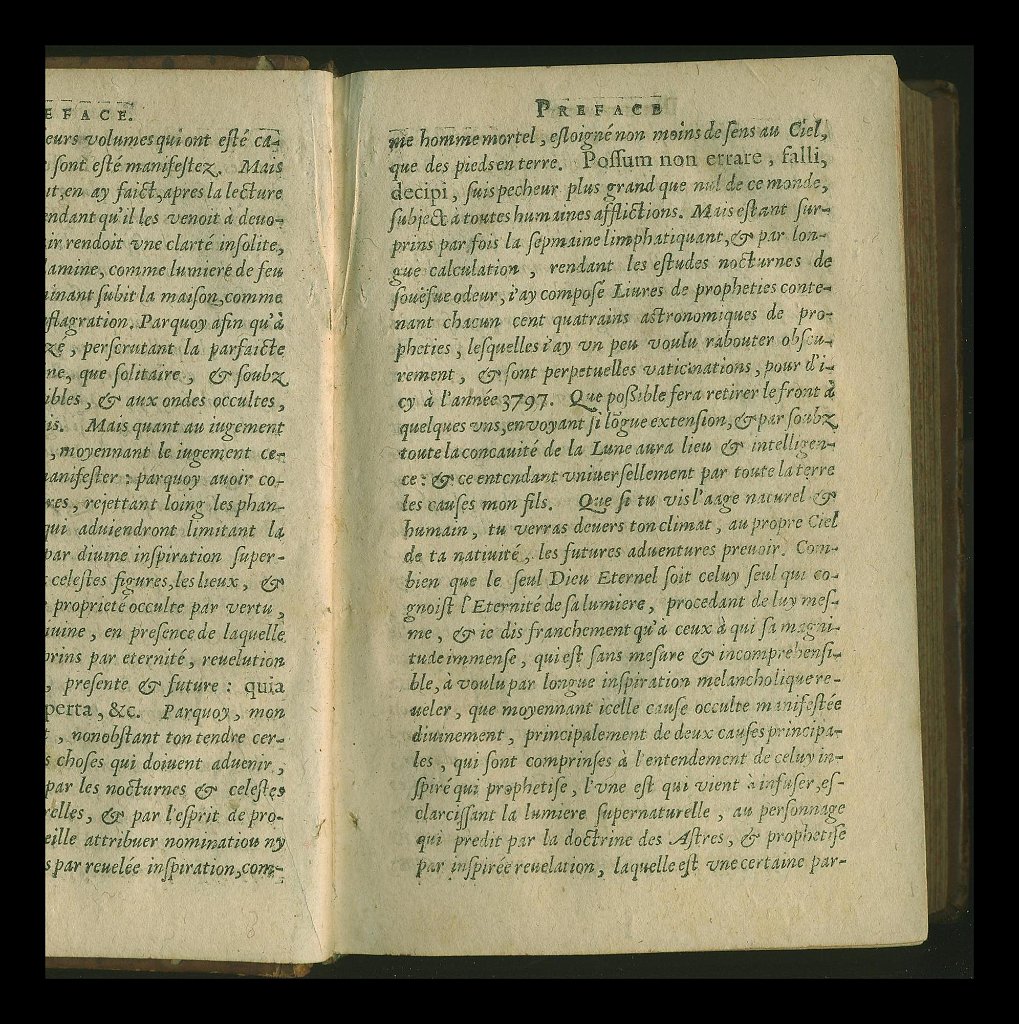 EFACE.
eurs volumes qui ont esté ca-
sont esté manifestez. Mais
ut, en ay faict, apres la lecture
endant qu'il les venoit à deuo-
ir, rendoit vne clarté insolite,
lamine, comme lumiere de feu
inant subit la maison, comme
nflagration. Parquoy afin qu'à
zé, perscrutant la parfaicte
ne, que solitaire, & soubz
ibles, & aux ondes occultes,
is. Mais quant au iugement
, moyennant le iugement ce-
anifester: parquoy auoir co-
res, rejettant loing les phan-
qui aduiendront limitant la
par diuine inspiration super-
celestes figures, les lieux, &
proprieté occulte par vertu,
iuine, en presence de laquelle
prins par eternité, reuelution
, presente & future: quia
perta, &c. Parquoy, mon
, nonobstant ton tendre cer-
s choses qui doiuent aduenir,
par les nocturnes & celestes
relles, & par l'esprit de pro-
eille attribuer nomination ny
s par reuelée inspiration, com-
PREFACE
me homme mortel, esloigné non moins de sens au Ciel,
que des pieds en terre. Possum non errare, falli,
decipi, suis pecheur plus grand que nul de ce monde,
subject à toutes humaines afflictions. Mais estant sur-
prins par fois la sepmaine limphatiquant, & par lon-
gue calculation, rendant les estudes nocturnes de
souëfue odeur, i'ay composé Liures de propheties conte-
nant chacun cent quatrains astronomiques de pro-
pheties, lesquelles i'ay vn peu voulu rabouter obscu-
rement, & sont perpetuelles vaticinations, pour d'i-
cy à l'année 3797. Que possible fera retirer le front à
quelques vns, en voyant si lõgue extension, & par soubz
toute la concauité de la Lune aura lieu & intelligen-
ce: & ce entendant vniuersellement par toute la terre
les causes mon fils. Que si tu vis l'aage naturel &
humain, tu verras deuers ton climat, au propre Ciel
de ta natiuité, les futures aduentures preuoir. Com-
bien que le seul Dieu Eternel soit celuy seul qui co-
gnoist l'Eternité de sa lumiere, procedant de luy mes-
me, & ie dis franchement qu'à ceux à qui sa magni-
tude immense, qui est sans mesure & incomprehensi-
ble, à voulu par longue inspiration melancholique re-
ueler, que moyennant icelle cause occulte manifestée
diuinement, principalement de deux causes principa-
les, qui sont comprinses à l'entendement de celuy in-
spiré qui prophetise, l'vne est qui vient à infuser, es-
clarcissant la lumiere supernaturelle, au personnage
qui predit par la doctrine des Astres, & prophetise
par inspirée reuelation, laquelle est vne certaine par-